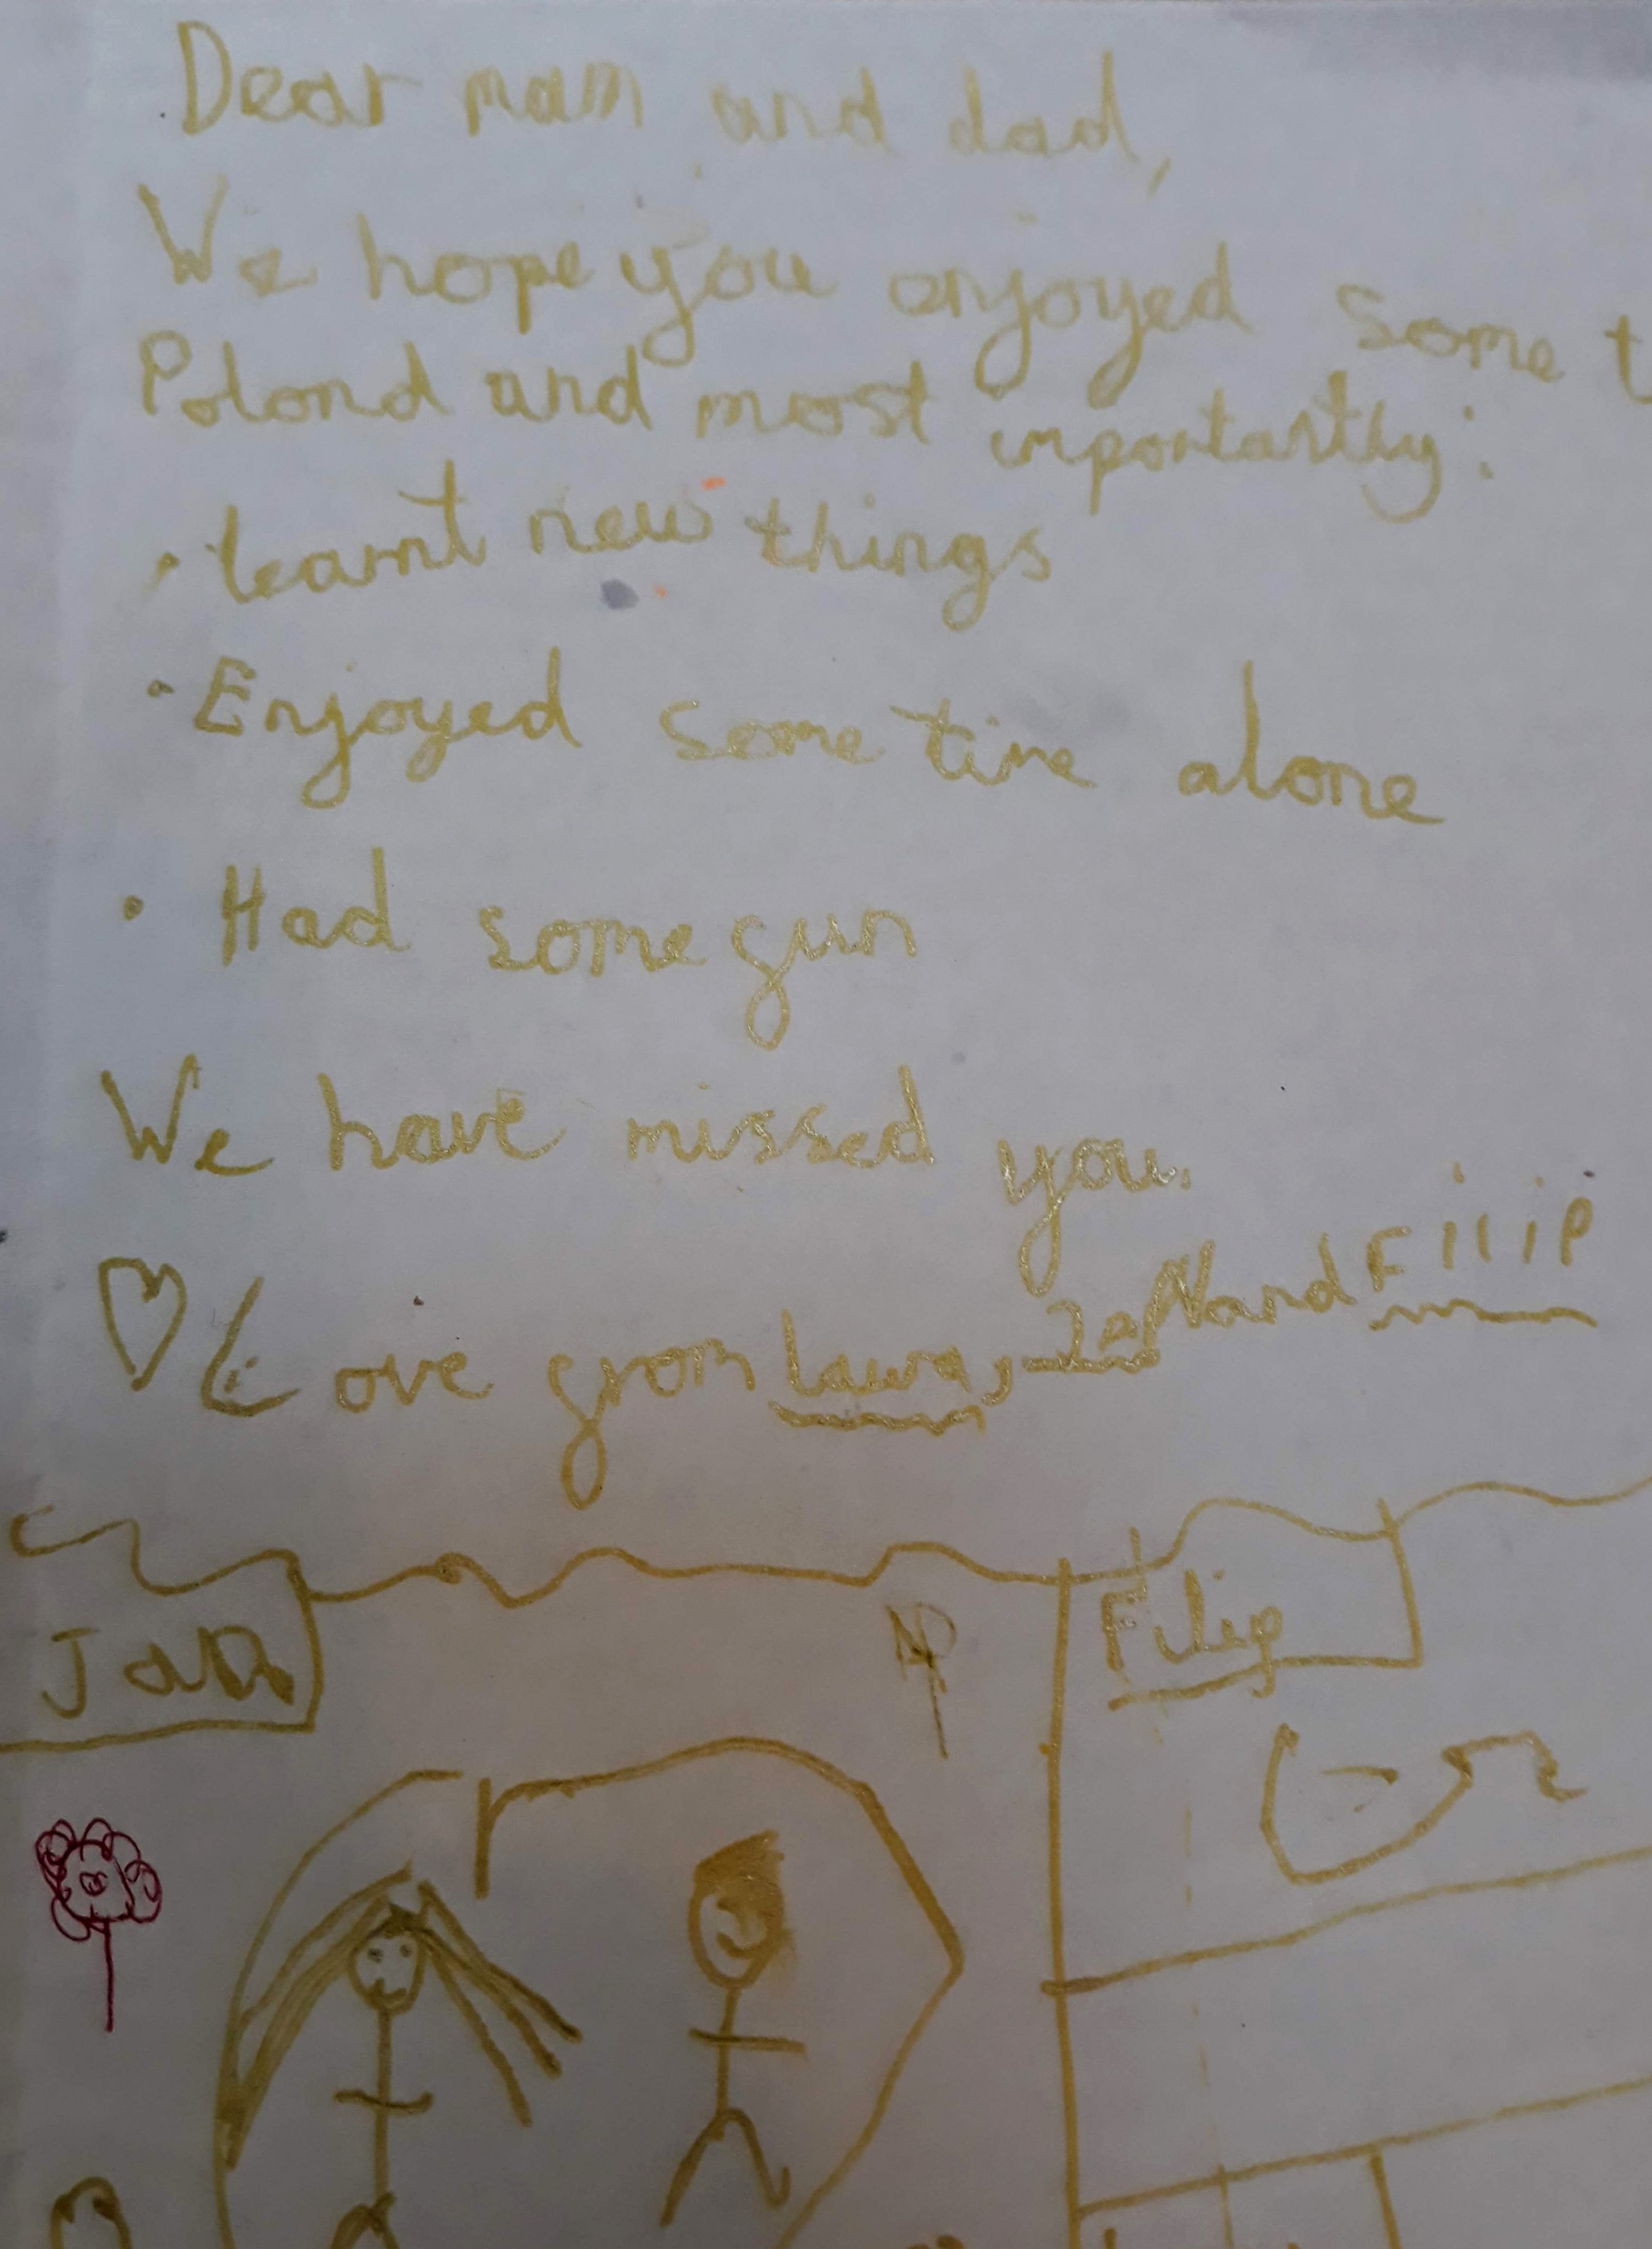 Dear mam and dad,
We hope you enjoyed some t
Poland and most importantly:
• learnt new things
• Enjoyed some time alone
• Had some fun
We have missed you.
Love from Laura, Jan and Filip
Jan
Filip